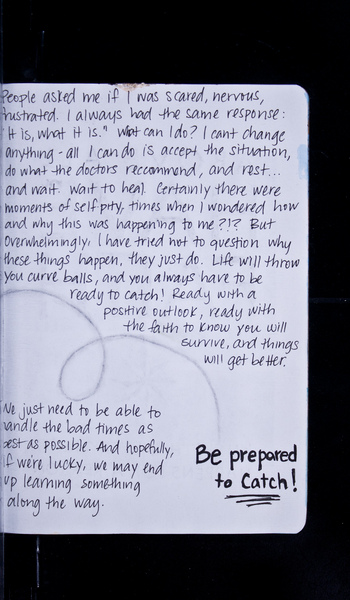 People asked me if I was scared, nervous,
frustrated. I always had the same response:
"It is, what it is." What can I do? I cant change
anything - all I can do is accept the situation,
do what the doctors recommend, and rest...
and wait. Wait to heal. Certainly there were
moments of self pity, times when I wondered how
and why this was happening to me?!? But
Overwhelmingly, I have tried not to question why
these things happen, they just do. Life will throw
you curve balls, and you always have to be
ready to catch! Ready with a
positive outlook, ready with
the faith to know you will
survive, and things
will get better.
We just need to be able to
handle the bad times as
best as possible. And hopefully,
if we're lucky, we may end
up learning something
along the way.
Be prepared
to Catch!